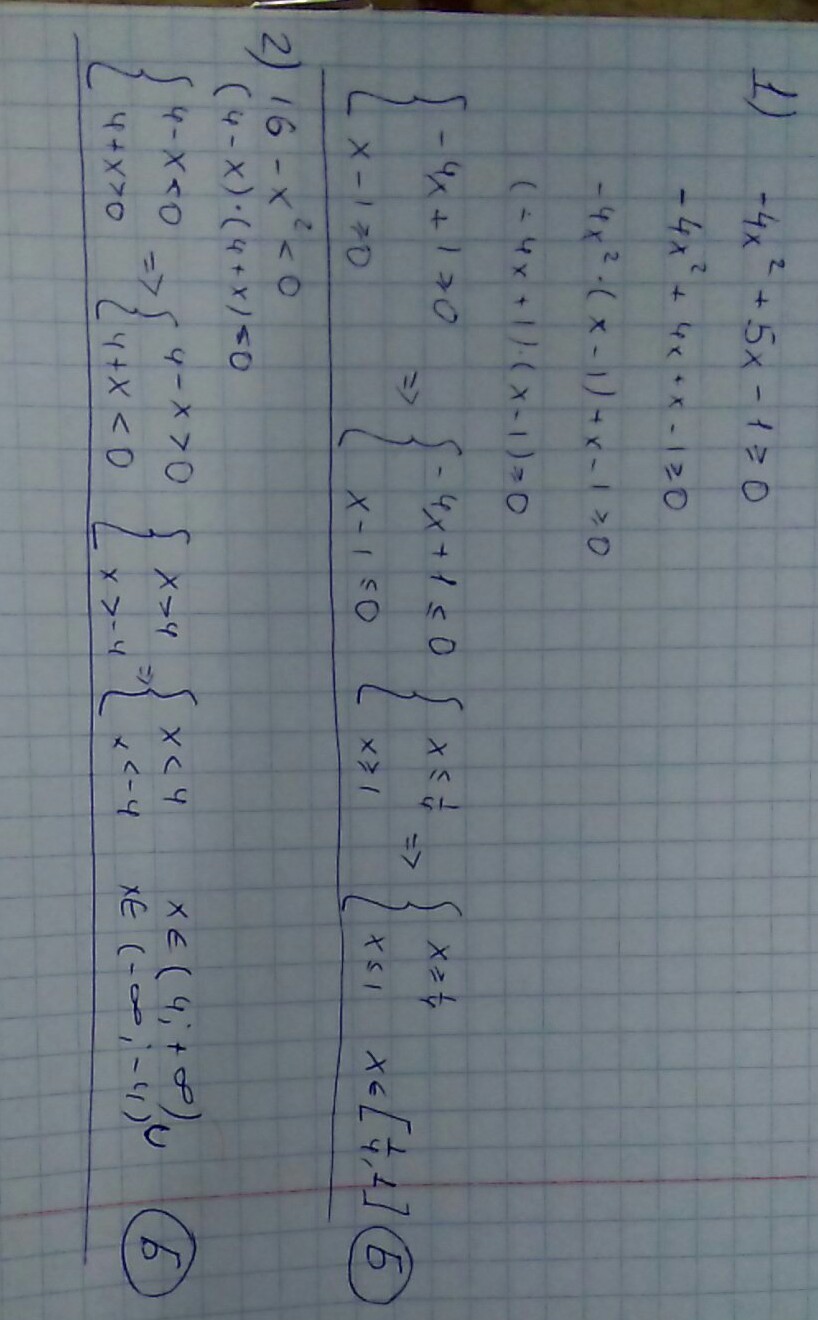 1) -4x² + 5x - 1 ≥ 0
-4x² + 4x + x - 1 ≥ 0
-4x² · (x - 1) + x - 1 ≥ 0
(-4x + 1) · (x - 1) ≥ 0
{ -4x + 1 ≥ 0 => { -4x + 1 ≤ 0 { x ≤ 1/4 => { x ≥ 1/4
{ x - 1 ≥ 0 { x - 1 ≤ 0 { x ≥ 1 { x ≤ 1 x ∈ [1/4; 1] Б
2) 16 - x² < 0
(4 - x) · (4 + x) < 0
{ 4 - x < 0 => { 4 - x > 0 { x > 4 => { x < 4 x ∈ (4; +∞)
{ 4 + x > 0 { 4 + x < 0 { x > -4 { x < -4 x ∈ (-∞; -4) ∪ Б